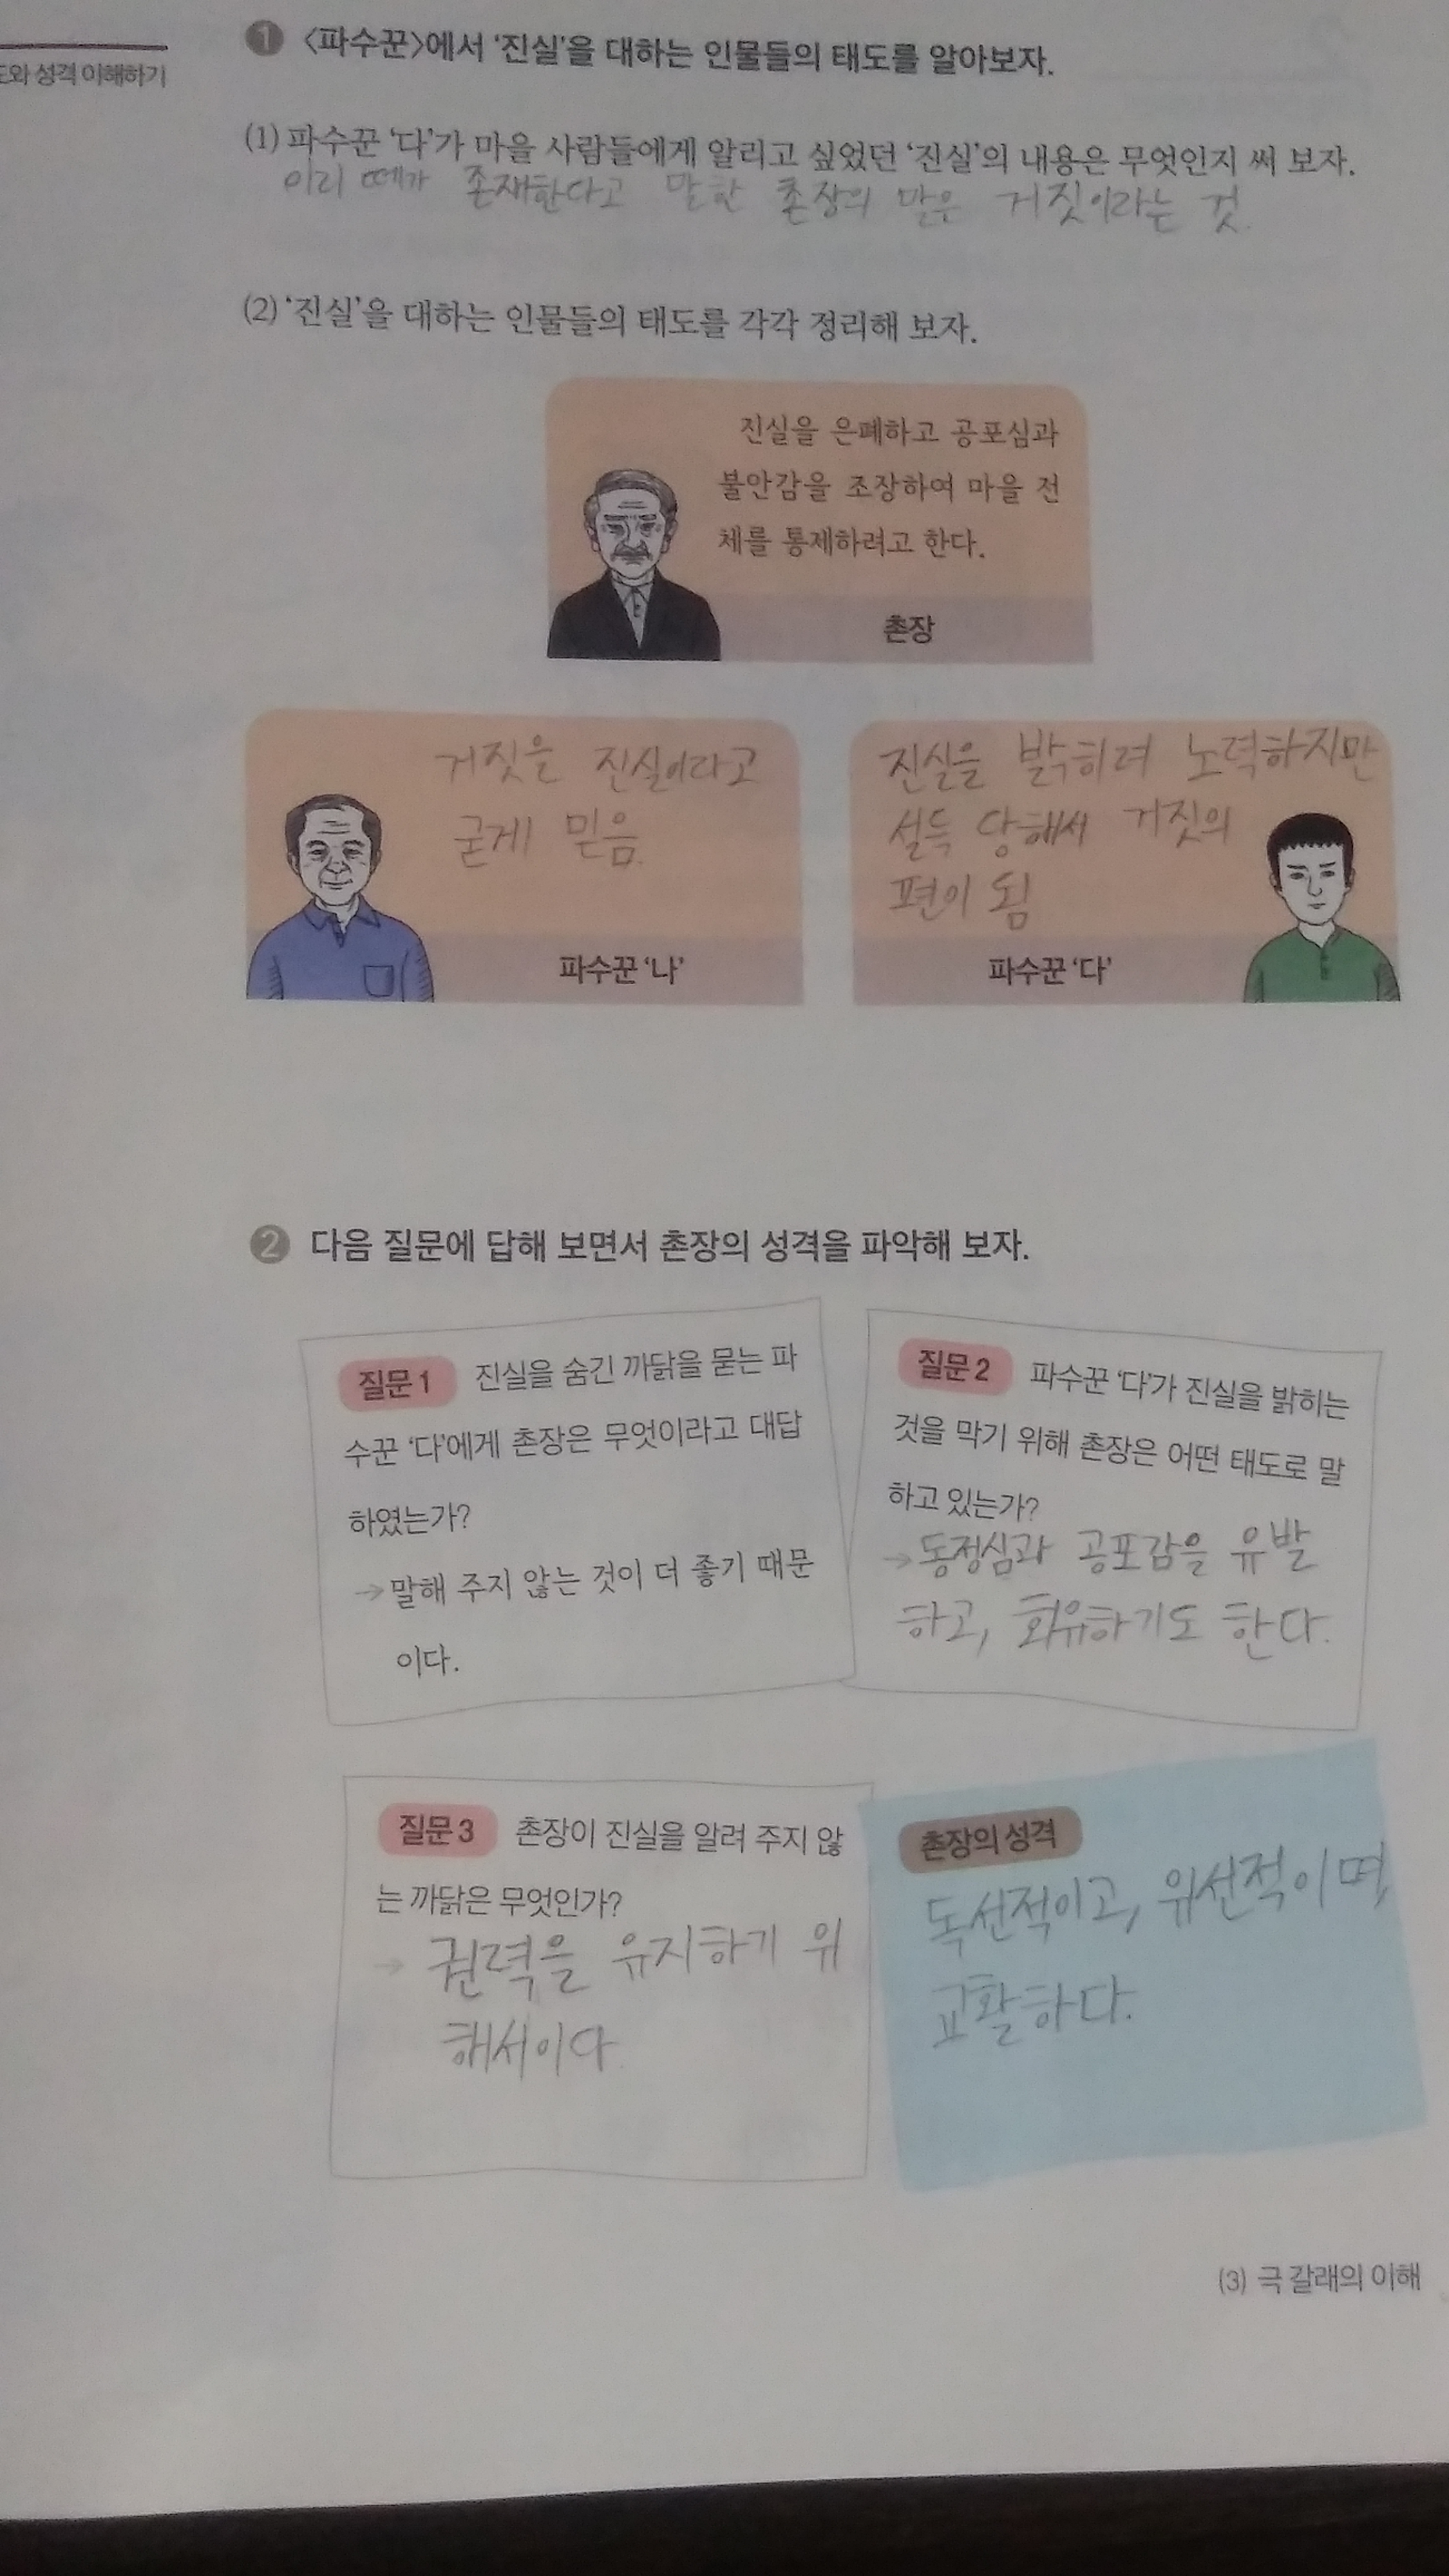 도와 성격 이해하기
1 <파수꾼>에서 '진실'을 대하는 인물들의 태도를 알아보자.
(1) 파수꾼 '다'가 마을 사람들에게 알리고 싶었던 '진실'의 내용은 무엇인지 써 보자.
이리 떼가 존재한다고 말한 촌장의 말은 거짓이라는 것.
(2) '진실'을 대하는 인물들의 태도를 각각 정리해 보자.
진실을 은폐하고 공포심과
불안감을 조장하여 마을 전
체를 통제하려고 한다.
촌장
거짓을 진실이라고
굳게 믿음.
파수꾼 '나'
진실을 밝히려 노력하지만
설득 당해서 거짓의
편이 됨
파수꾼 '다'
2 다음 질문에 답해 보면서 촌장의 성격을 파악해 보자.
질문 1 진실을 숨긴 까닭을 묻는 파
수꾼 '다'에게 촌장은 무엇이라고 대답
하였는가?
→ 말해 주지 않는 것이 더 좋기 때문
이다.
질문 2 파수꾼 '다'가 진실을 밝히는
것을 막기 위해 촌장은 어떤 태도로 말
하고 있는가?
→ 동정심과 공포감을 유발
하고, 회유하기도 한다.
질문 3 촌장이 진실을 알려 주지 않
는 까닭은 무엇인가?
→ 권력을 유지하기 위
해서이다
촌장의 성격
독선적이고, 위선적이며,
교활하다.
(3) 극 갈래의 이해